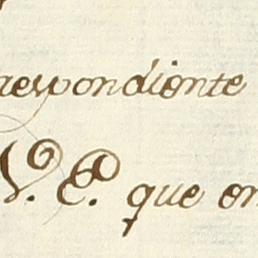 respondiente
V. E. que en